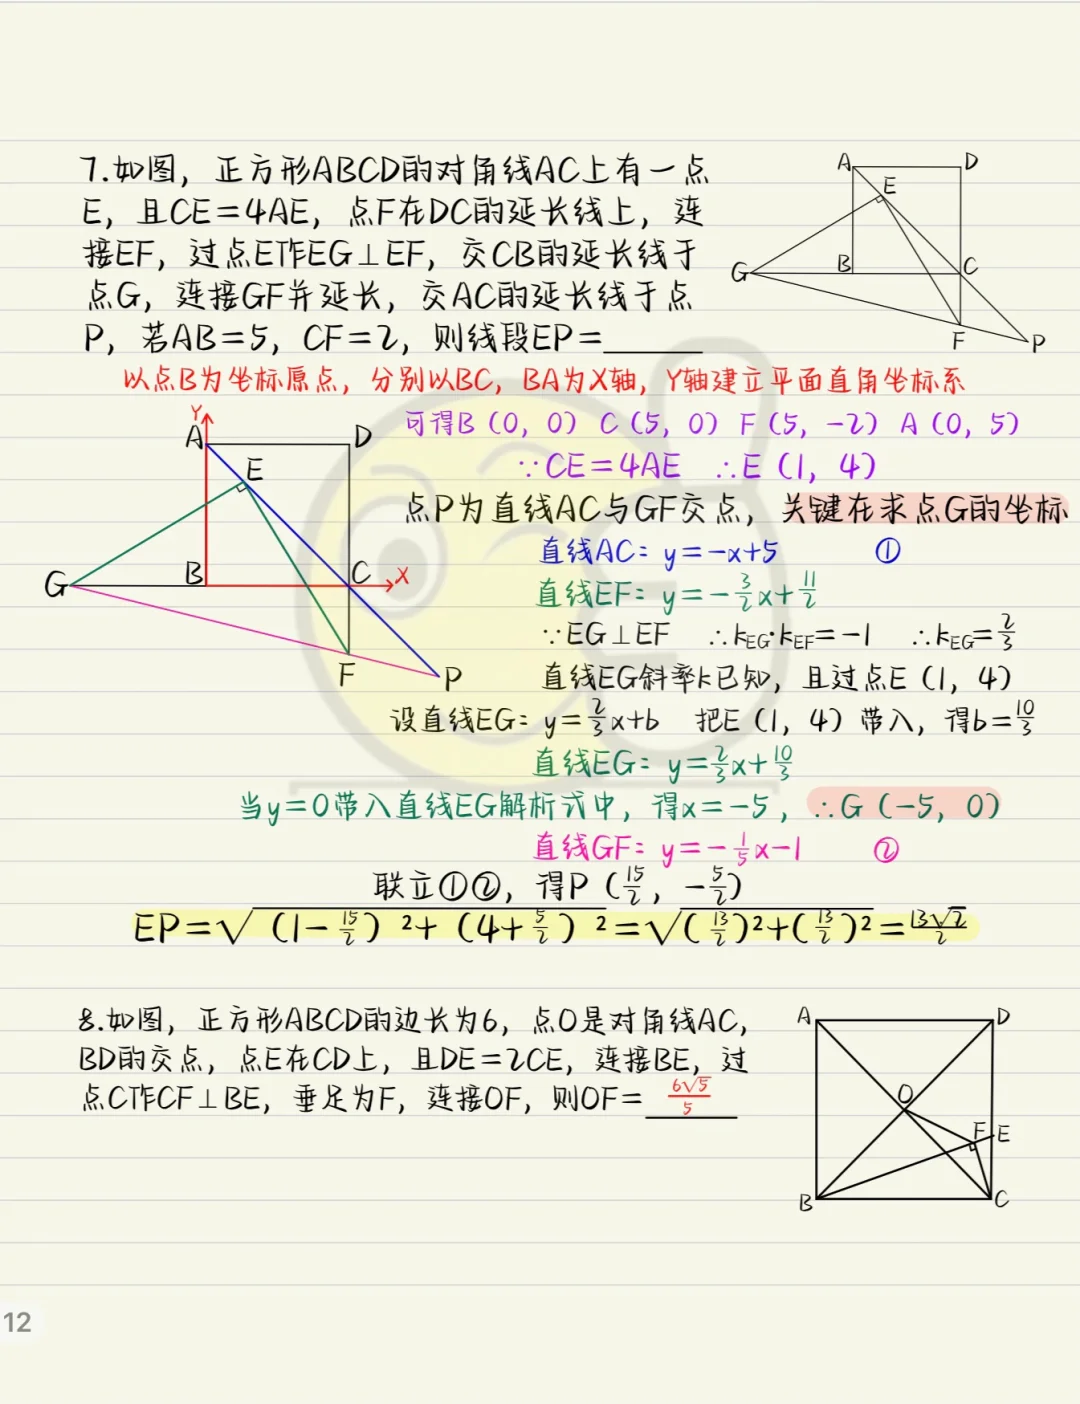 7.如图，正方形ABCD的对角线AC上有一点
E，且CE=4AE，点F在DC的延长线上，连
接EF，过点E作EG⊥EF，交CB的延长线于
点G，连接GF并延长，交AC的延长线于点
P，若AB=5，CF=2，则线段EP=______
A D
E
G B C
F P
以点B为坐标原点，分别以BC，BA为X轴，Y轴建立平面直角坐标系
Y
A D
E
G B C X
F P
可得B（0，0）C（5，0）F（5，-2）A（0，5）
∵CE=4AE ∴E（1，4）
点P为直线AC与GF交点，关键在求点G的坐标
直线AC：y=-x+5 ①
直线EF：y=-3/2x+11/2
∵EG⊥EF ∴kEG·kEF=-1 ∴kEG=2/3
直线EG斜率k已知，且过点E（1，4）
设直线EG：y=2/3x+b 把E（1，4）带入，得b=10/3
直线EG：y=2/3x+10/3
当y=0带入直线EG解析式中，得x=-5，∴G（-5，0）
直线GF：y=-1/5x-1 ②
联立①②，得P（15/2，-5/2）
EP=√（1-15/2）²+（4+5/2）²=√(13/2)²+(13/2)²=13√2/2
8.如图，正方形ABCD的边长为6，点O是对角线AC，
BD的交点，点E在CD上，且DE=2CE，连接BE，过
点C作CF⊥BE，垂足为F，连接OF，则OF=6√5/5
A D
O
F E
B C
12